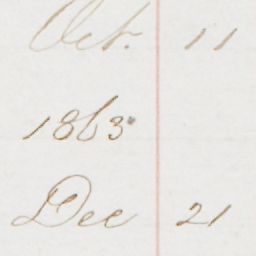 Oct. 11
1863
Dec 21